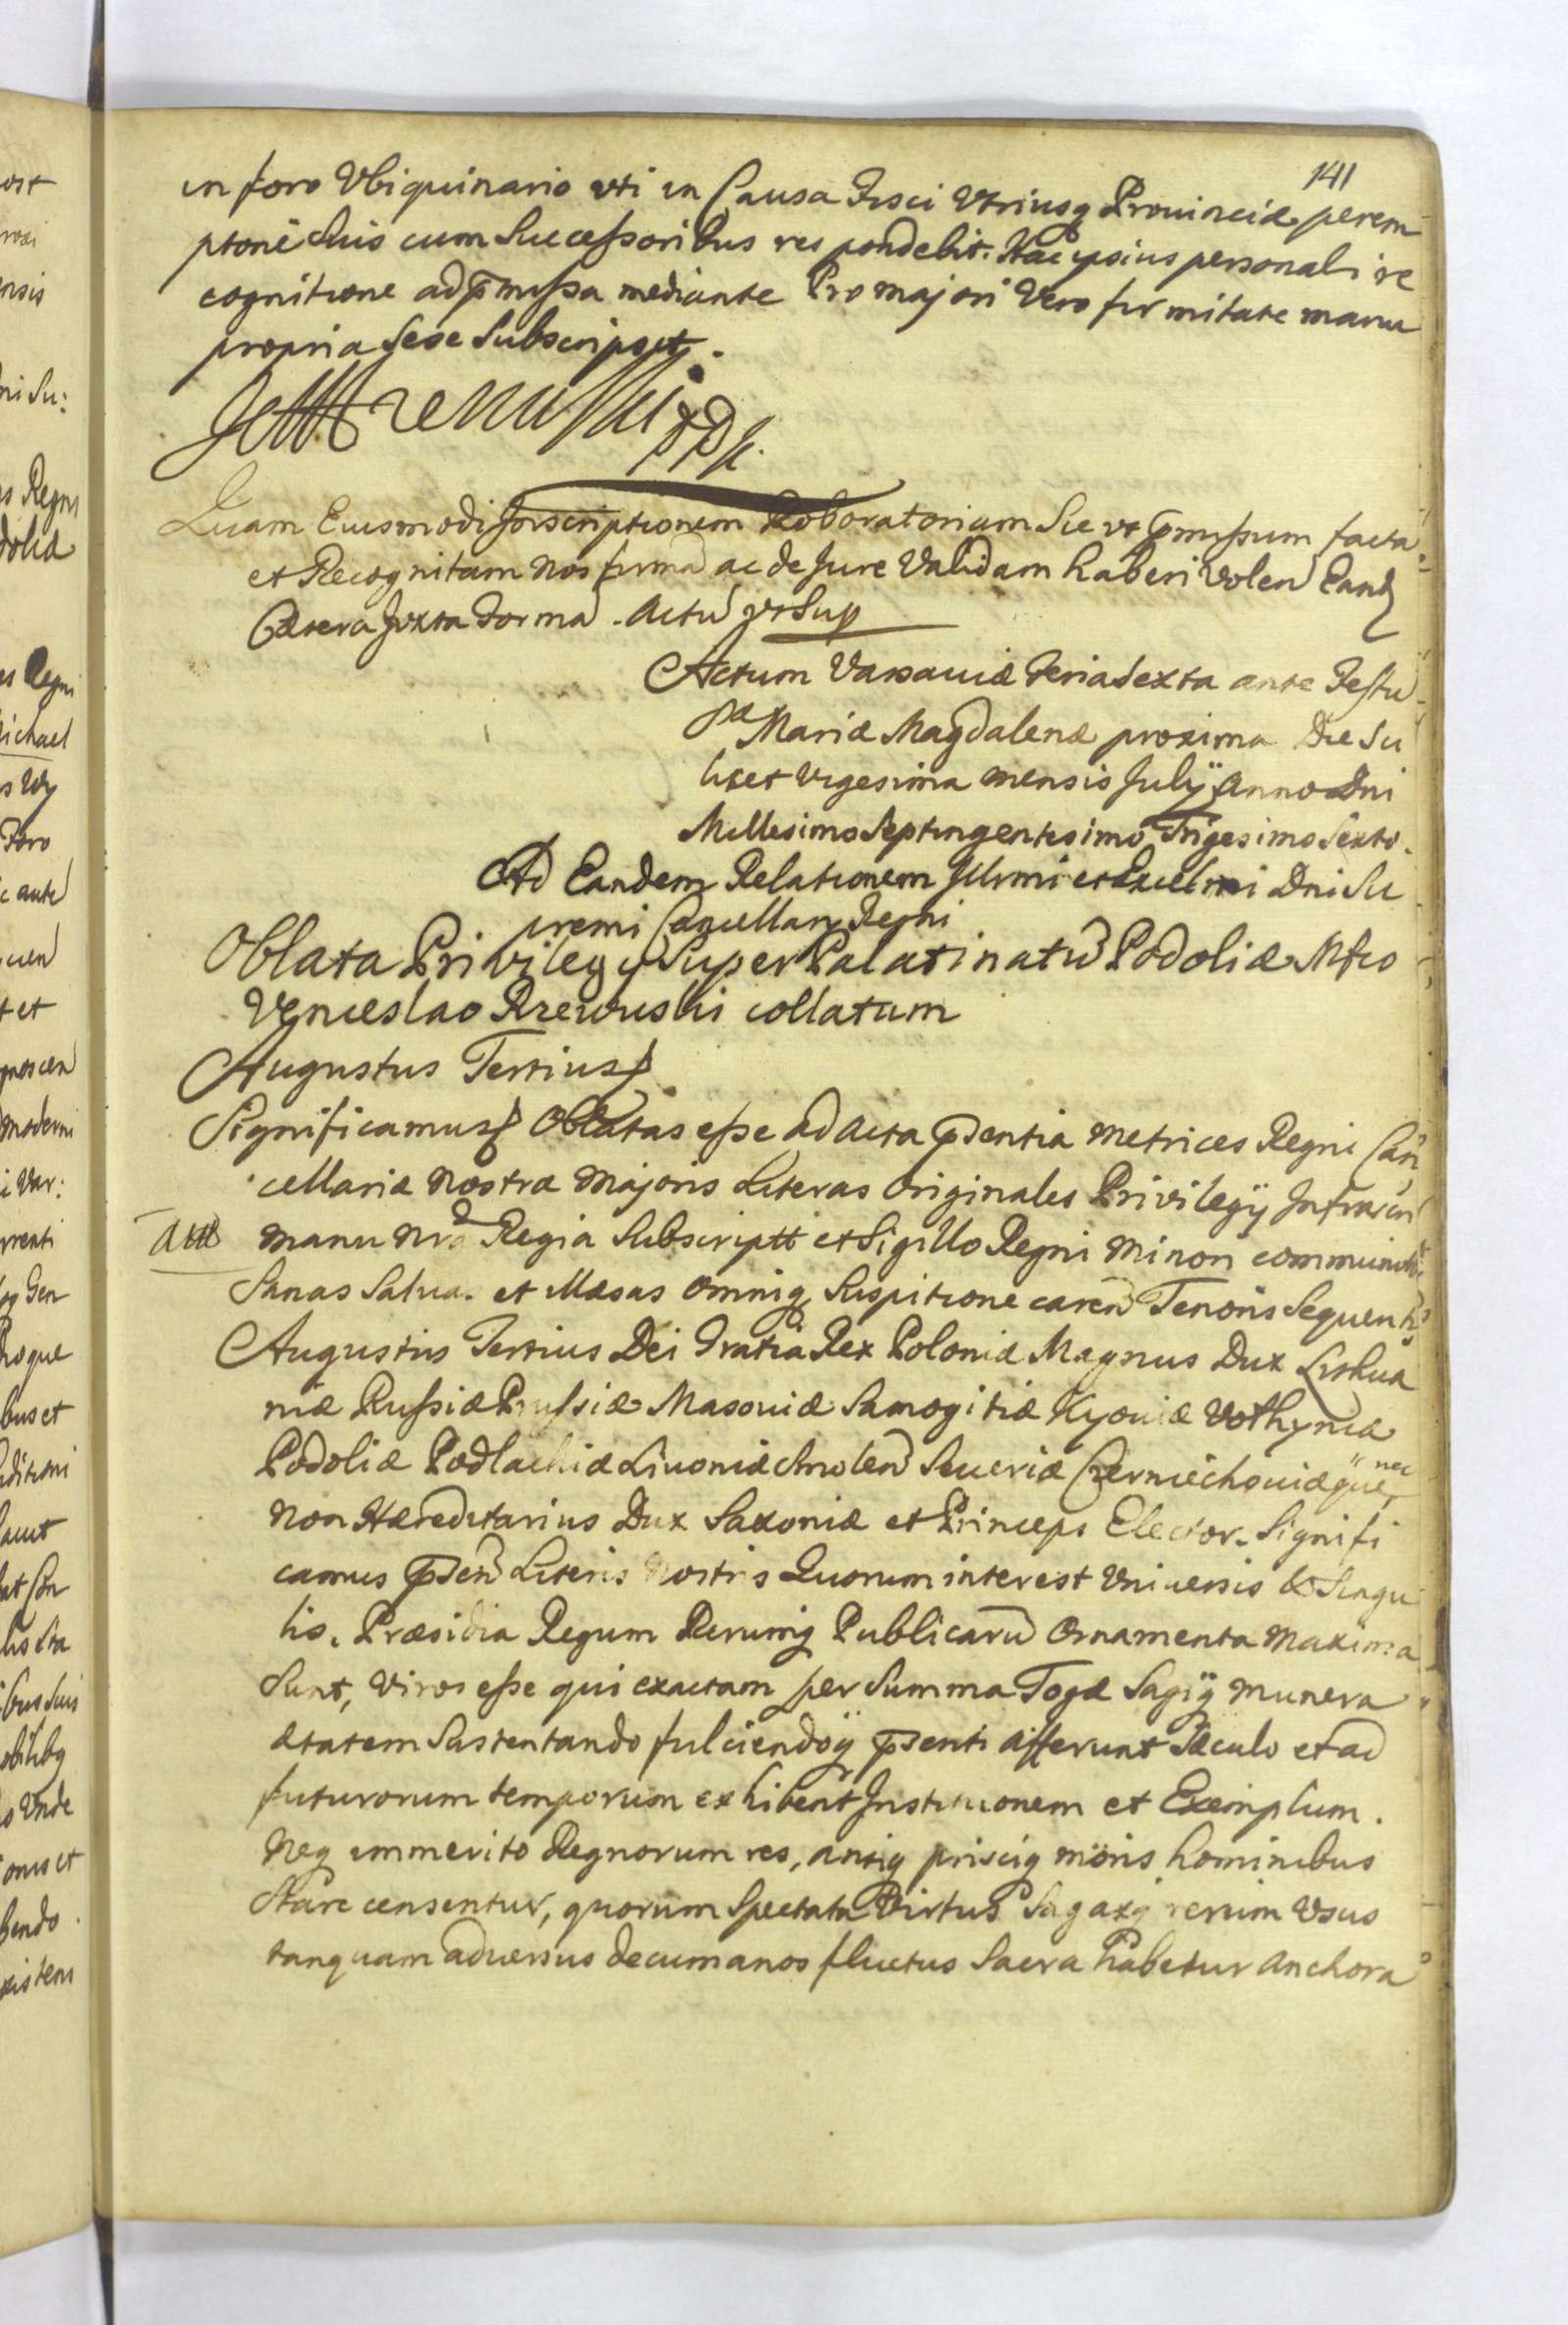 141
in foro Ubiquinario uti in Causa Fisci Utriusq Provinciæ perem
ptorié suis cum Successoribus respondebit. Hac ipsius personali re
cognitione ad p̄missa mediante Pro majori Vero firmitate manu
propria sese Subscripsit.
Quam Eiusmodi Inscriptionem Roboratoriam Sic ut p̄missum facta
et Recognitam nos firma ac de Jure Validam haberi volen Eand
Cætera Juxta Forma. Actu ut Sup
Actum Varsaviæ Feria Sexta ante Festu
Sæ Mariæ Magdalenæ proxima Die Sci
licet vigesima mensis Julÿ Anno Dni
Millesimo Septingentesimo Trigesimo Sexto.
Ad Eandem Relationem Illrmi et Excellmi Dni Su
premi Cancellarÿ Regni
Oblata Privilegÿ Super Palatinatu Podoliæ Mfco
Venceslao Rzewuski collatum
Augustus Tertius
Significamus Oblatas esse ad Acta p̄sentia metrices Regni Can
cellariæ nostræ Majoris Literas originales Privilegÿ Infrascri
manu nra Regia Subscriptt et Sigillo Regni minori communit
Sanas Salvas et illæsas omniq Suspitione caren Tenoris Sequentis
Augustus Tertius Dei Gratia Rex Poloniæ Magnus Dux Lithua
niæ Russiæ Prussiæ Masoviæ Samogitiæ Kyoviæ Volhyniæ
Podoliæ Podlachiæ Livoniæ Smolen Severiæ Czerniechoviæque nec
non Hæreditarius Dux Saxoniæ et Princeps Elector. Signifi
camus p̄sen Literis Nostris Quorum interest Universis & Singu
lis. Præsidia Regum Rerumq Publicaru Ornamenta maxima
Sunt, Viros esse qui exactam per Summa Togæ Sagiq munera
ætatem Sustentando fulciendoq p̄senti afferunt Sæculo et ad
futurorum temporum exhibent Institutionem et Exemplum.
Neq immerito Regnorum res, antiq prisciq moris hominibus
Stare censentur, quorum Spectata Virtus Sagaxq rerum Usus
tanquam adversus decumanos fluctus Sacra habetur Anchora